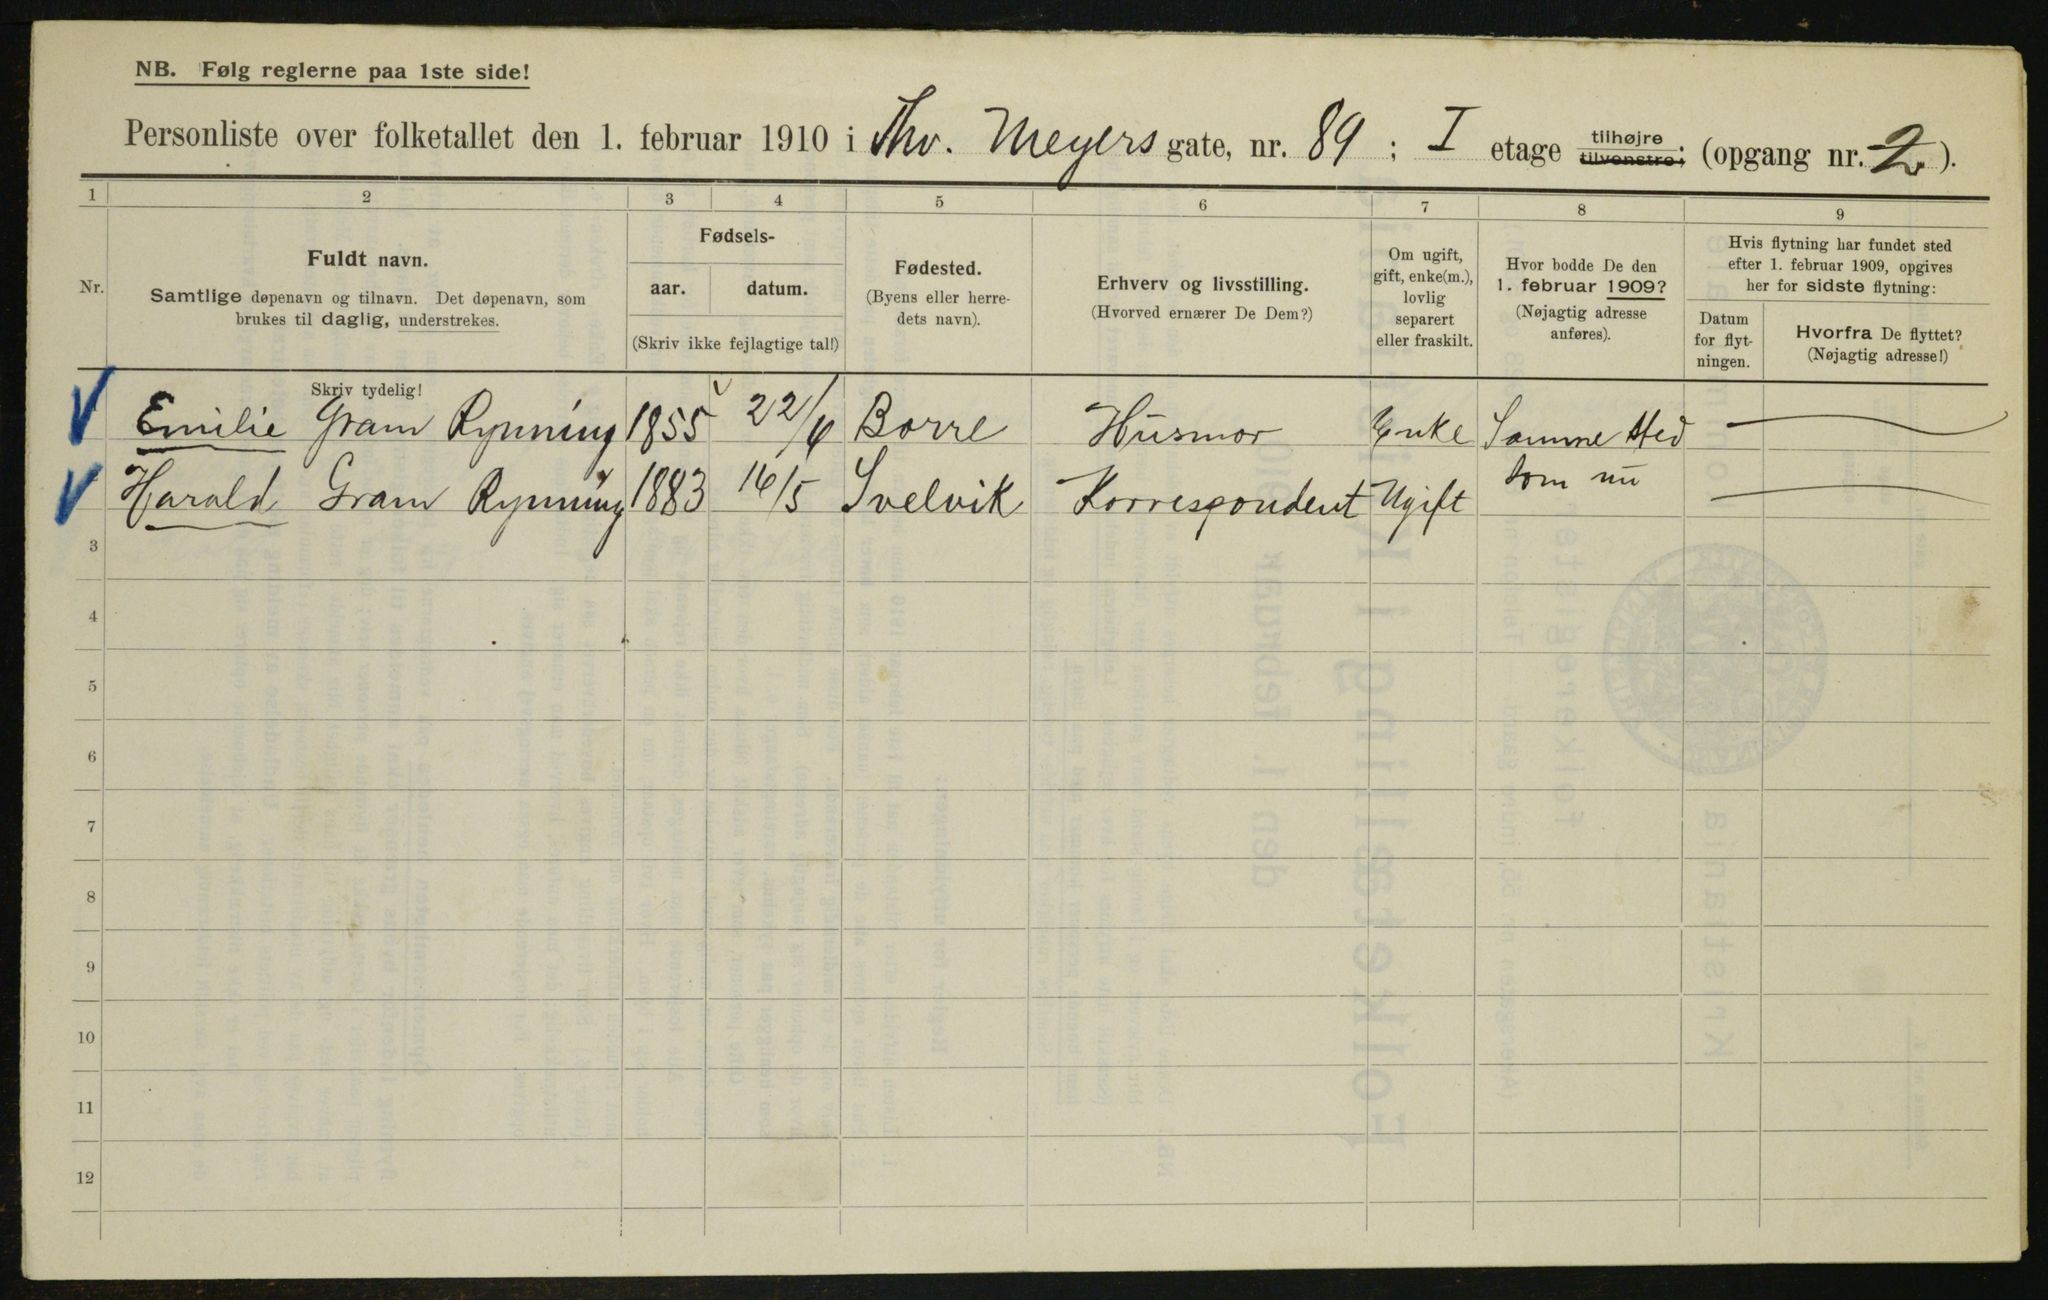 NB. Følg reglerne paa 1ste side!
Personliste over folketallet den 1. februar 1910 i Thv. Meyers gate, nr. 89; I etage tilhøjre tilvenstre; (opgang nr. 2).
1 2 3 4 5 6 7 8 9
Nr.
Fuldt navn.
Samtlige døpenavn og tilnavn. Det døpenavn, som
brukes til daglig, understrekes.
Skriv tydelig!
Fødsels-
aar. datum.
(Skriv ikke fejlagtige tal!)
Fødested.
(Byens eller herre-
dets navn).
Erhverv og livsstilling.
(Hvorved ernærer De Dem?)
Om ugift,
gift, enke(m.),
lovlig
separert
eller fraskilt.
Hvor bodde De den
1. februar 1909?
(Nøjagtig adresse
anføres).
Hvis flytning har fundet sted
efter 1. februar 1909, opgives
her for sidste flytning:
Datum
for flyt-
ningen.
Hvorfra De flyttet?
(Nøjagtig adresse!)
Emilie Gram Rynning 1855 22/6 Borre Husmor Enke Samme sted
Harald Gram Rynning 1883 16/5 Svelvik Korrespondent Ugift som nu
3
4
5
6
7
8
9
10
11
12